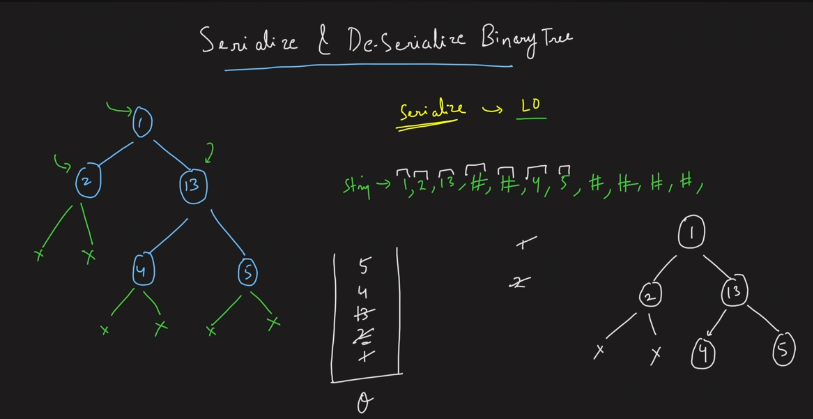 Serialize & De-Serialize Binary Tree
Serialize → LO
String → 1, 2, 13, #, #, 4, 5, #, #, #, #,
1
2
13
x
x
4
5
x
x
x
x
5
4
13
2
1
Q
1
2
1
2
13
x
x
4
5